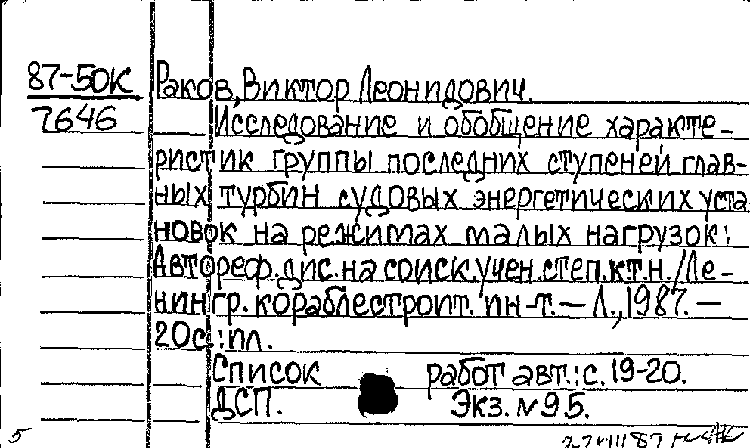 87-50К Раков, Виктор Леонидович.
7646 Исследование и обобщение характе-
ристик группы последних ступеней глав-
ных турбин судовых энергетических уста
новок на режимах малых нагрузок:
Автореф. дис. на соиск. учен. степ. к.т.н. / Ле-
нингр. кораблестроит. ин-т. — Л., 1987. —
20с.: ил.
Список работ авт.: с. 19-20.
ДСП. Экз. №95.
5